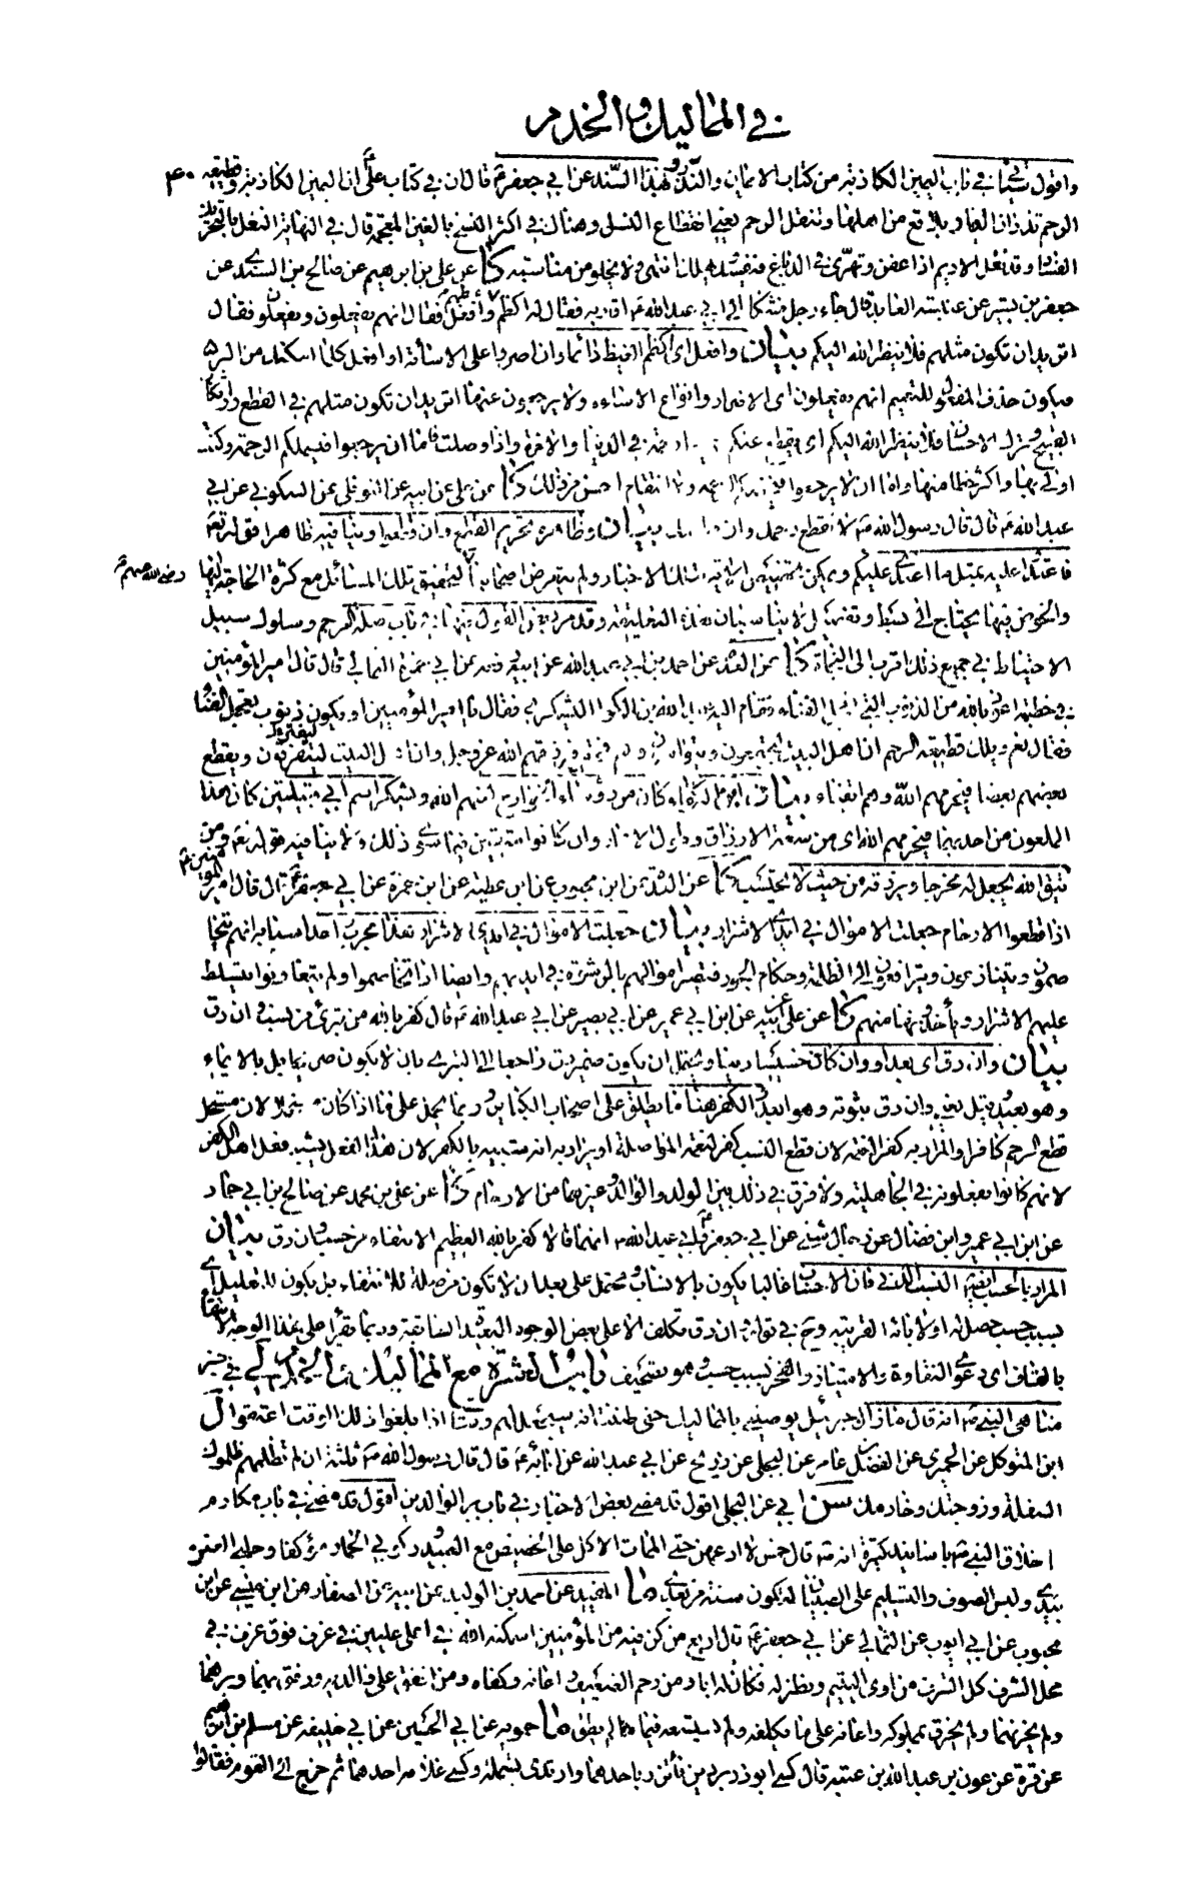 في المماليك والخدم
واقول سيأتي في باب اليمين الكاذبة من كتاب الايمان والنذور بهذا السند عن ابي جعفر ع قال ان في كتاب علي ع ان اليمين الكاذبة وقطيعة ٤٠
الرحم تذران الديار بلاقع من اهلها وتنقل الرحم يعني انقطاع النسل وهنا في اكثر النسخ بالغين المعجمة قال في النهاية النغل بالتحريك
الفساد وقد نغل الاديم اذا عفن وتهرى في الدباغ فيفسد ويهلك انتهى ولا يخلو من مناسبة كا عن علي بن ابرهيم عن صالح بن السندي عن
جعفر بن بشير عن عنبسة العابد قال جاء رجل فشكا الى ابي عبد الله ع اقاربه فقال له اكظم غيظهم وافعل فقال انهم يفعلون ويفعلون فقال
اتريد ان تكون مثلهم فلا ينظر الله اليكم بيان وافعل اى اكظم الغيظ دائما وان اصروا على الاساءة او افعل كلما امكنك من البر
فيكون حذف المفعول للتعميم انهم يفعلون اى الاضرار وانواع الاساءة ولا يرجعون عنها اتريد ان تكون مثلهم في القطع وارتكاب
القبيح وترك الاحسان فلا ينظر الله اليكم اى يقطع عنكم رحمته في الدنيا والاخرة واذا وصلت فاما ان يرجعوا فيشملكم الرحمة وكنت
اولى بها واكثر حظا منها واما ان لا يرجعوا فيخصك الرحمة ولا انتقام احسن من ذلك كا عن علي عن ابيه عن النوفلي عن السكوني عن ابي
عبد الله ع قال قال رسول الله ص لا تقطع رحمك وان قطعتك بيان ظاهره تحريم القطع وان قطعوا وينافيه ظاهرا قوله تعالى
فاعتدوا عليه بمثل ما اعتدى عليكم ويمكن تخصيص الاية بتلك الاخبار ولم يتعرض اصحابنا لتحقيق تلك المسائل مع كثرة الحاجة اليها رضي الله عنهم
والخوض فيها يحتاج الى بسط وتفصيل لا يناسبان هذه التعليقة وقد مر بعض القول فيها في باب صلة الرحم وسلوك سبيل
الاحتياط في جميع ذلك اقرب الى النجاة كا عن العدة عن احمد بن ابي عبد الله عن ابيه رفعه عن ابي حمزة الثمالي قال قال امير المؤمنين
في خطبته اعوذ بالله من الذنوب التي تعجل الفناء فقام اليه عبد الله بن الكوا اليشكري فقال يا امير المؤمنين او يكون ذنوب تعجل الفناء
فقال نعم ويلك قطيعة الرحم ان اهل البيت ليجتمعون ويتواسون وهم فجرة فيرزقهم الله عز وجل وان اهل البيت ليتفرقون ويقطع
بعضهم بعضا فيحرمهم الله وهم اتقياء بيان ابن الكواء كان من رؤساء الخوارج لعنهم الله ويشكر اسم ابي قبيلتين كان هذا
الملعون من احدهما فيحرمهم الله اى من سعة الارزاق وطول الاعمار وان كانوا متقين فيما سوى ذلك ولا ينافيه قوله تعالى ومن
يتق الله يجعل له مخرجا ويرزقه من حيث لا يحتسب كا عن العدة عن ابن محبوب عن ابن عطية عن ابن حمزة عن ابي جعفر ع قال قال امير المؤمنين ع
اذا قطعوا الارحام جعلت الاموال في ايدي الاشرار بيان جعلت الاموال في ايدي الاشرار هذا مجرب احد اسبابه انهم يتخا
صمون ويتنازعون ويترافعون الى الظلمة وحكام الجور فيصير اموالهم بالرشوة في ايديهم وايضا اذا تخاصموا ولم يتعاونوا يتسلط
عليهم الاشرار وياخذونها منهم كا عن علي عن ابيه عن ابن ابي عمير عن ابي بصير عن ابي عبد الله ع قال كفر بالله من تبرئ من نسب وان دق
بيان وان دق اى بعد او وان كان خسيسا دنيا ويحتمل ان يكون ضمير دق راجعا الى التبري بان لا يكون صريحا بل بالايماء
وهو بعيد وقيل يعني وان دق ثبوته وهو ابعد والكفر هنا ما يطلق على اصحاب الكبائر وربما يحمل على ما اذا كان مستحلا لان مستحل
قطع الرحم كافر او المراد به كفر النعمة لان قطع النسب كفر لنعمة المواصلة او يراد به انه شبيه بالكفر لان هذا الفعل يشبه فعل اهل الكفر
لانهم كانوا يفعلونه في الجاهلية ولا فرق في ذلك بين الولد والوالد وغيرهما من الارحام كا عن علي بن محمد عن صالح بن ابي حماد
عن ابن ابي عمير وابن فضال عن رجال شتى عن ابي جعفر وابي عبد الله ع انهما قالا كفر بالله العظيم الانتفاء من حسب وان دق بيان
المراد بالحسب ايضا النسب الدني فان الاحساب غالبا يكون بالانساب ويحتمل على بعد ان لا تكون من صلة للانتفاء بل يكون للتعليل اى
بسبب حسب حصل له او لابائه القريبة وح في قوله وان دق تكلف الا على بعض الوجوه البعيدة السابقة وربما يقرأ على هذا الوجه الانتقاء
بالقاف اى دعوى النقاوة والامتياز والفخر بسبب حسب وهو تصحيف باب العشرة مع المماليك والخدم لي في خبر
مناهي النبي ص انه قال ما زال جبرئيل يوصيني بالمماليك حتى ظننت انه سيجعل لهم وقتا اذا بلغوا ذلك الوقت اعتقوا ل
ابن المتوكل عن الحميري عن الفضل بن عامر عن البجلي عن ذريح عن ابي عبد الله عن ابائه ع قال قال رسول الله ص ثلثة ان لم تظلمهم ظلموك
السفلة وزوجتك وخادمك سن ابي عن البجلي اقول قد مضى بعض الاخبار في باب بر الوالدين اقول قد مضى في باب مكارم
اخلاق النبي ص باسانيد كثيرة انه ص قال خمس لا ادعهن حتى الممات الاكل على الحضيض مع العبيد وركوبي الحمار مؤكفا وحلبي العنز
بيدي ولبس الصوف والتسليم على الصبيان لتكون سنة من بعدي ما المفيد عن احمد بن الوليد عن ابيه عن الصفار عن ابن عيسى عن ابن
محبوب عن ابي ايوب عن الثمالي عن ابي جعفر ع قال اربع من كن فيه من المؤمنين اسكنه الله في اعلى عليين في غرف فوق غرف في
محل الشرف كل الشرف من اوى اليتيم ونظر له فكان له ابا ومن رحم الضعيف واعانه وكفاه ومن انفق على والديه ورفق بهما وبرهما
ولم يحزنهما ولم يخرق بمملوكه واعانه على ما يكلفه ولم يستسعه فيما لم يطق ما حمويه عن ابي الحسين عن ابي خليفة عن مسلم بن ابراهيم
عن قرة عن عون بن عبد الله بن عتبة قال كسى ابو ذر بردين فائتزر باحدهما وارتدى بشملة وكسى غلامه احدهما ثم خرج الى القوم فقالوا